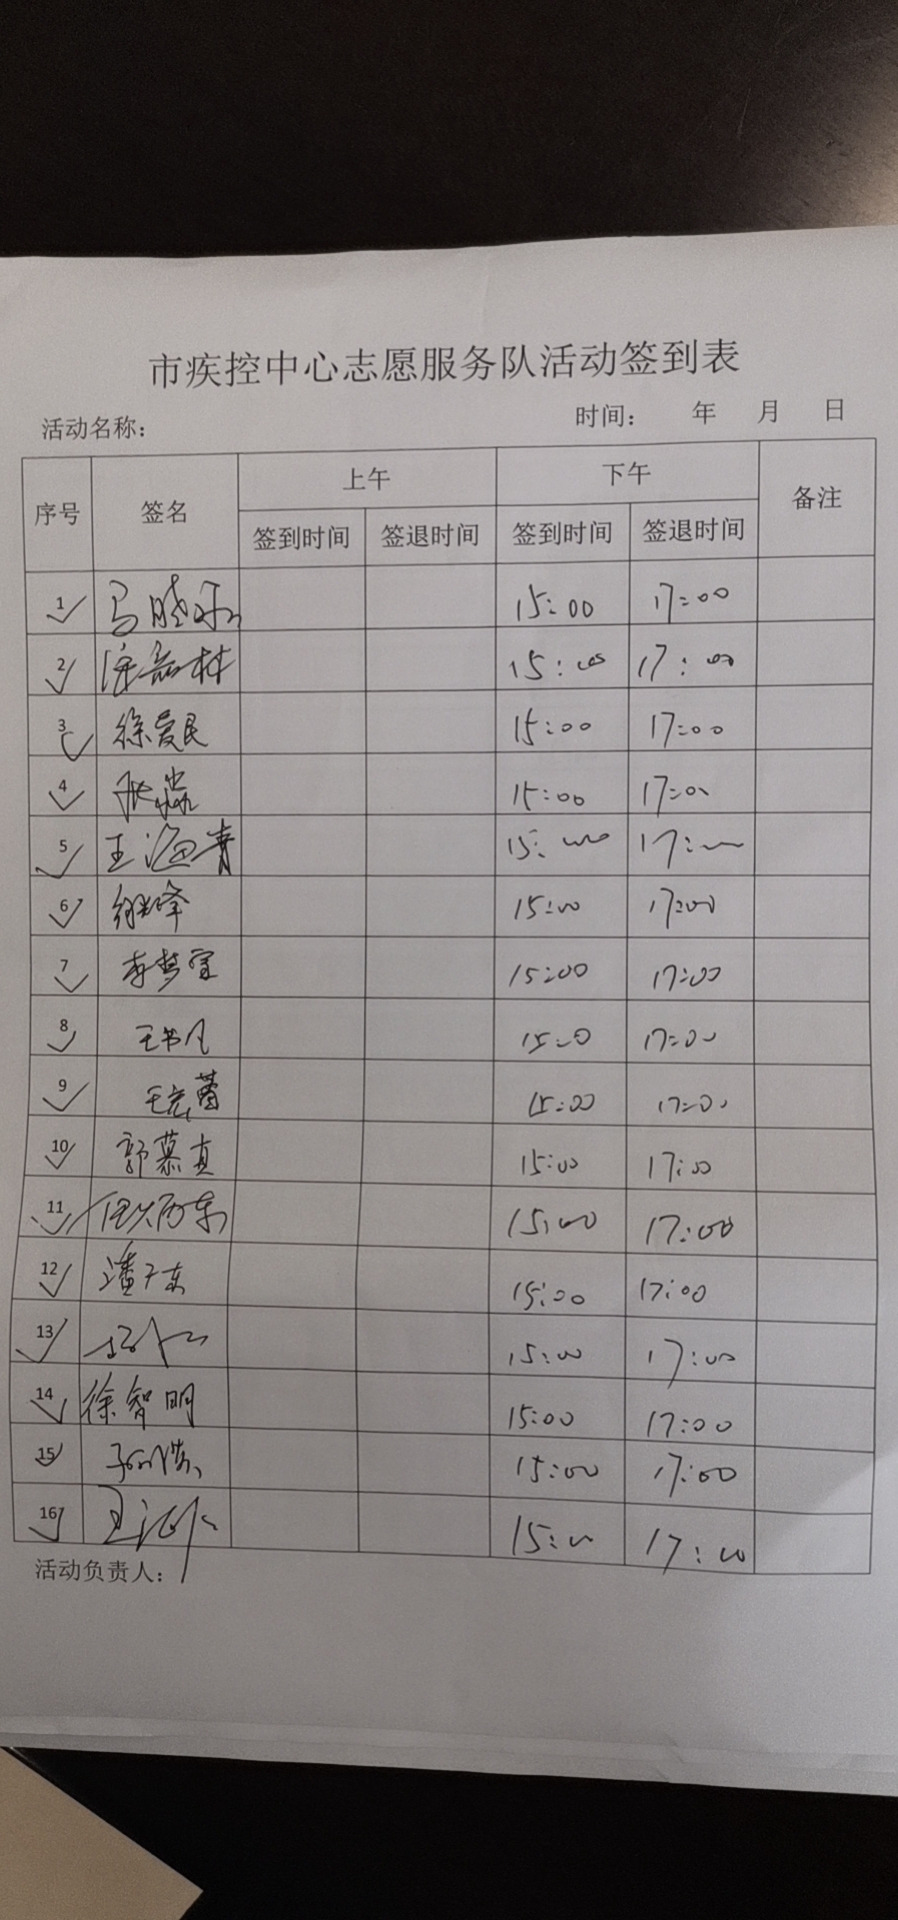 市疾控中心志愿服务队活动签到表
活动名称： 时间： 年 月 日
序号 签名 上午 下午 备注
签到时间 签退时间 签到时间 签退时间
1 15:00 17:00
2 15:00 17:00
3 徐爱民 15:00 17:00
4 15:00 17:00
5 王海青 15:00 17:00
6 15:00 17:00
7 李梦宣 15:00 17:00
8 王书凡 15:00 17:00
9 15:00 17:00
10 郭慕真 15:00 17:00
11 15:00 17:00
12 潘子东 15:00 17:00
13 15:00 17:00
14 徐智明 15:00 17:00
15 15:00 17:00
16 15:00 17:00
活动负责人：